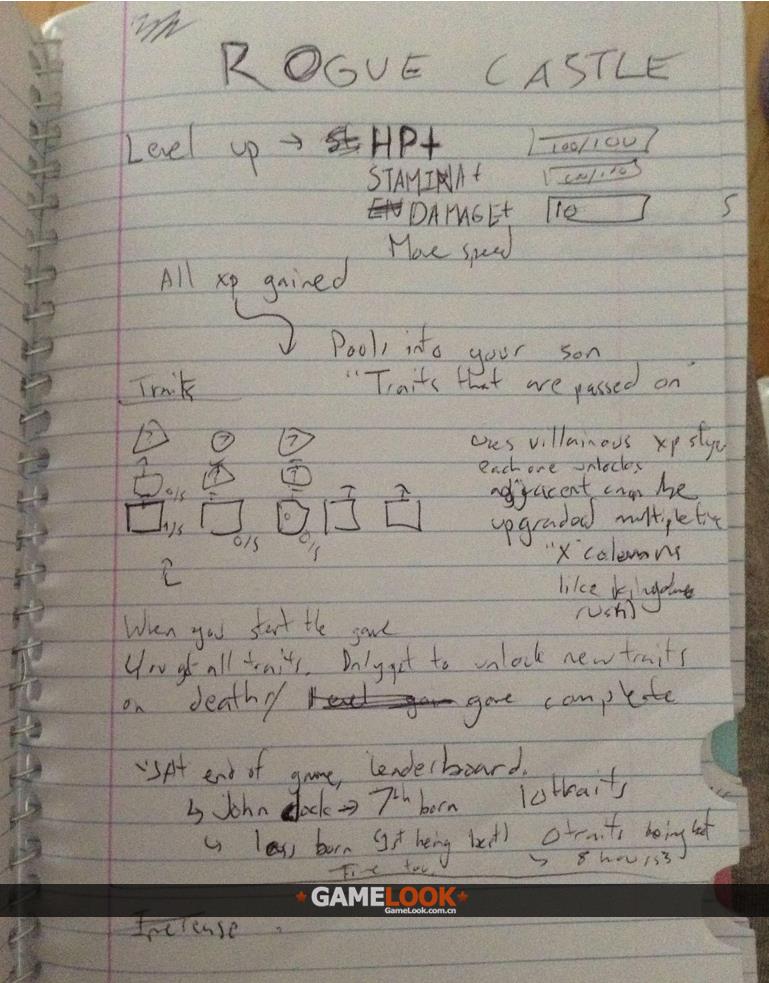 ROGUE CASTLE
Level up → HP+ 100/100
STAMINA+
DAMAGE+ 10 5
Move speed
All xp gained
Pools into your son
Traits "Traits that are passed on"
? ? ?
uses villainous xp style
each one unlocks
0/5
adjacent can be
1/5 0/5 0/5
upgraded multiple time
"X" columns
like kingdom
rush)
When you start the game
You get all traits. Only get to unlock new traits
on death/ game complete
At end of game, leaderboard.
↳ John Clock → 7th born 10 traits
↳ less born (1st being best) 0 traits being best
Time too. ↳ 8 hours
GAMELOOK
GameLook.com.cn